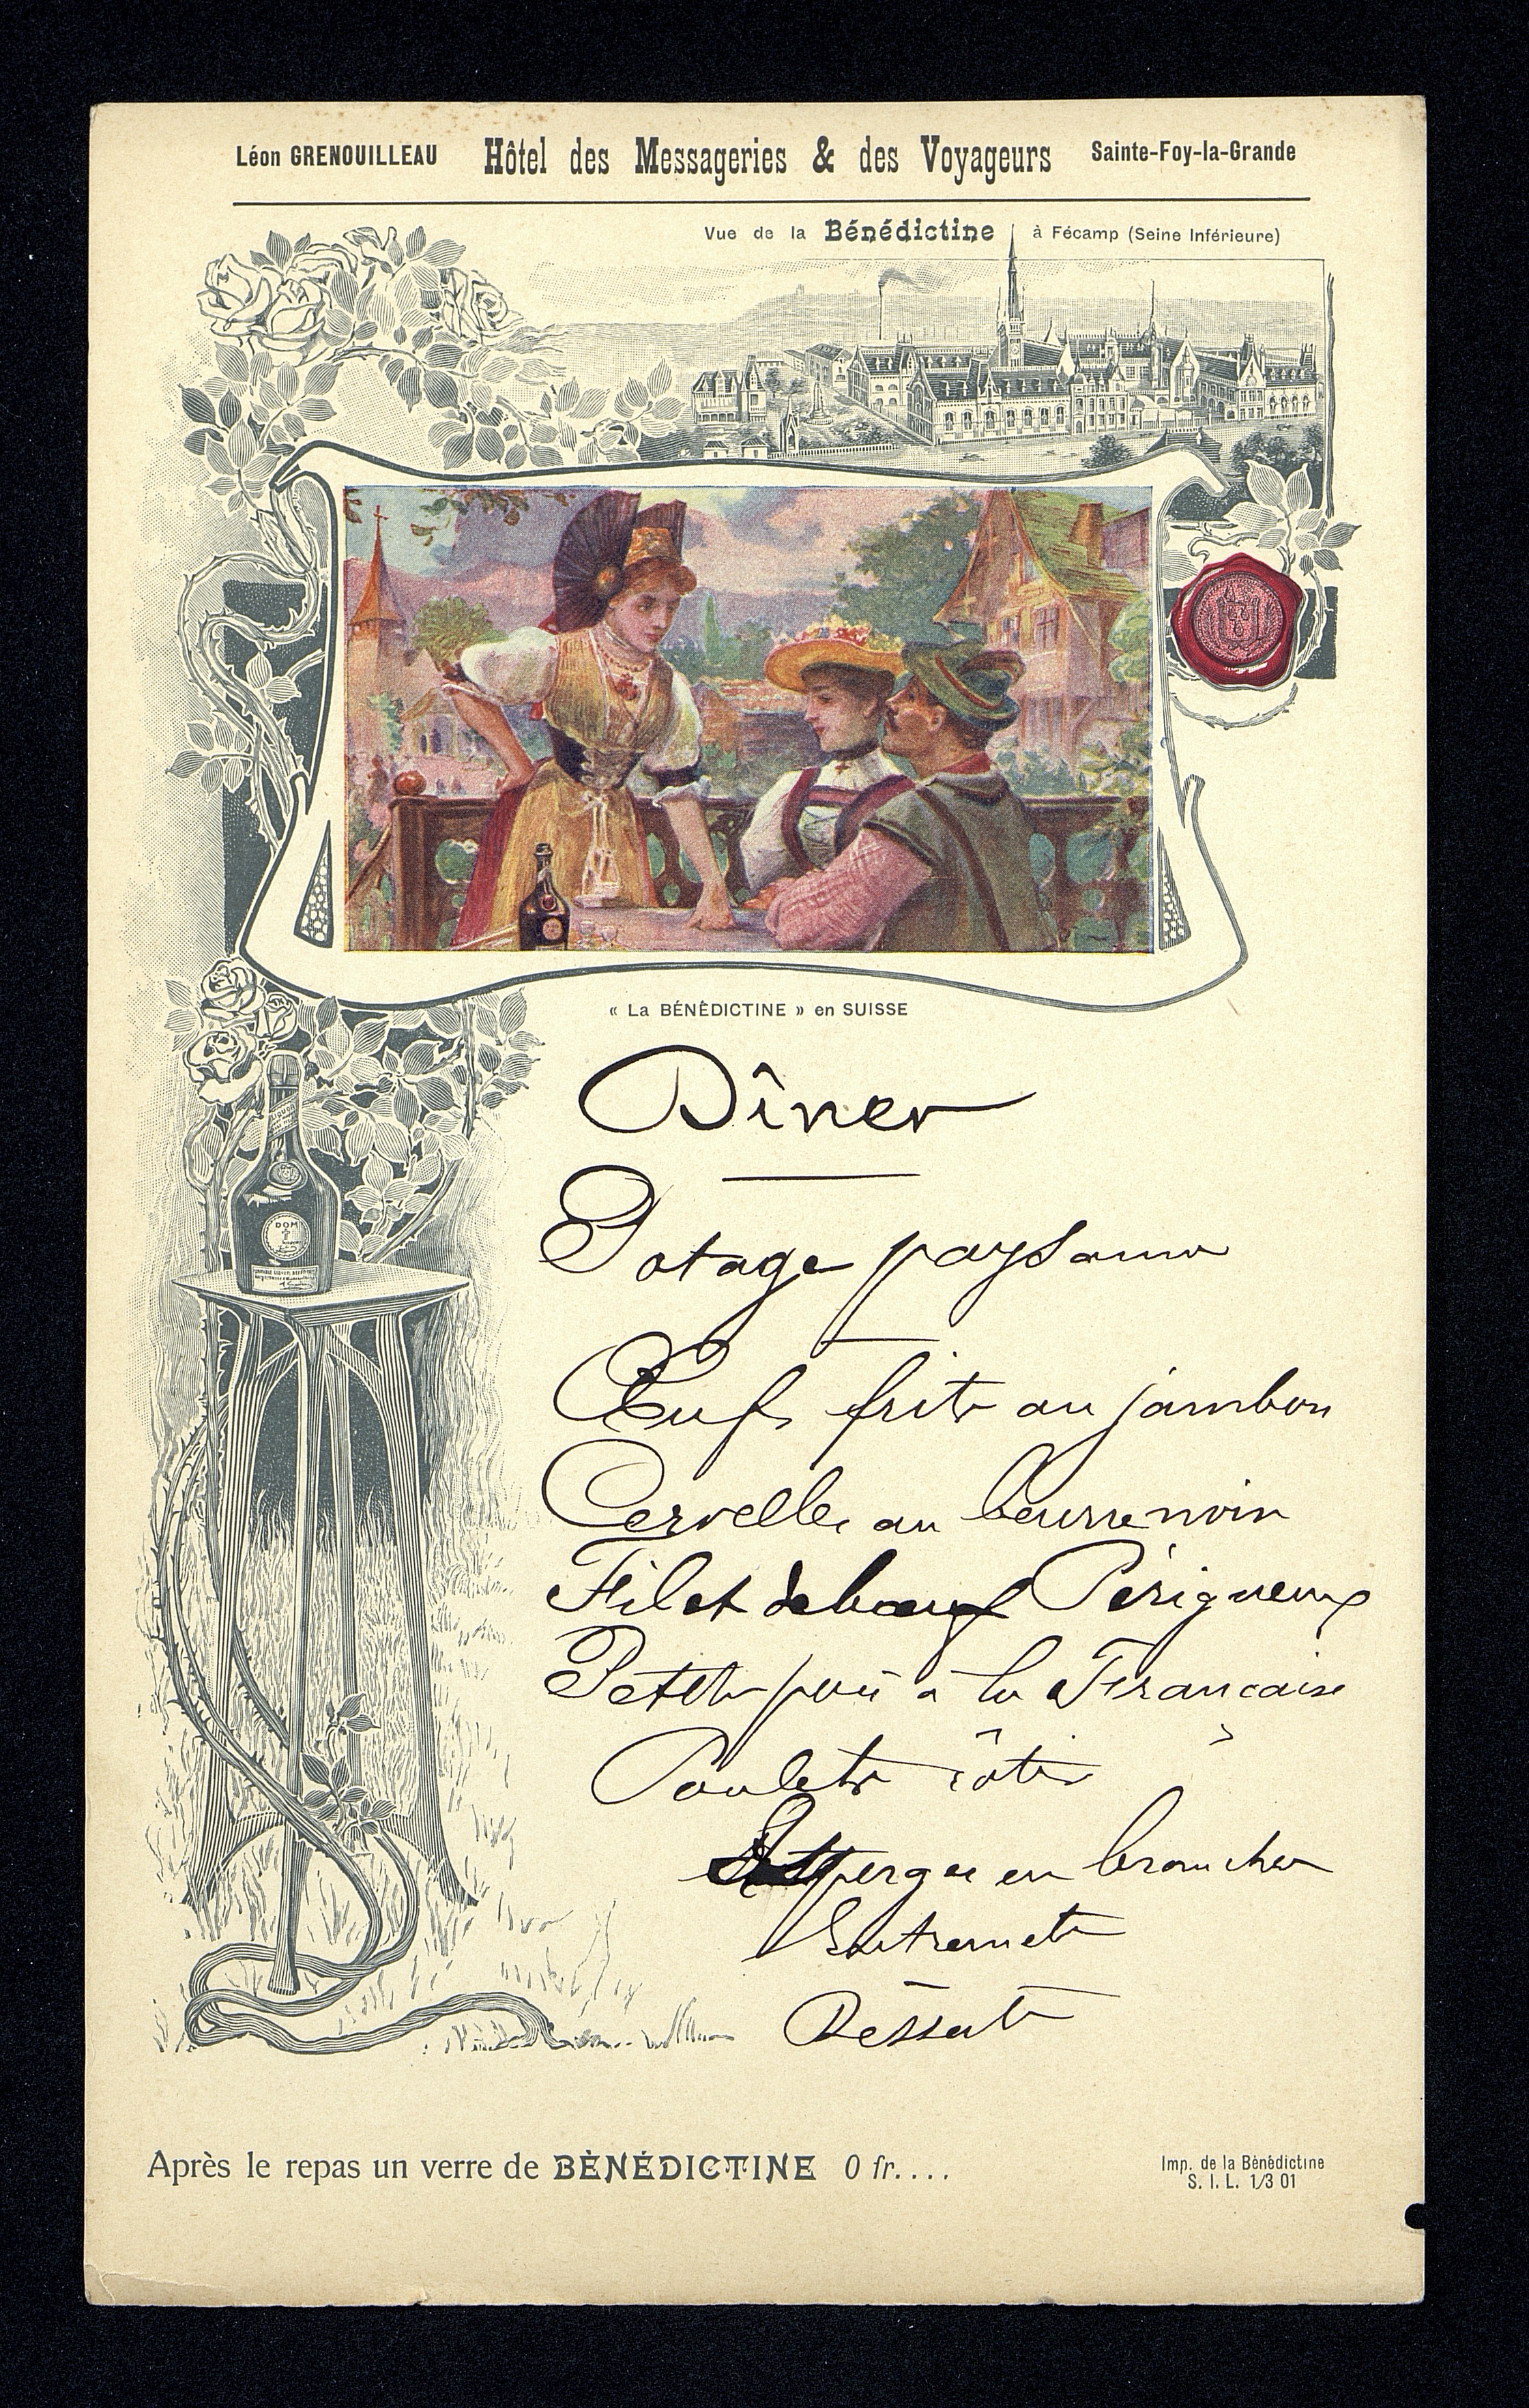 Léon GRENOUILLEAU Hôtel des Messageries & des Voyageurs Sainte-Foy-la-Grande
Vue de la Bénédictine à Fécamp (Seine Inférieure)
« La BÉNÉDICTINE » en SUISSE
Dîner
Potage paysanne
DOM
Œufs frits au jambon
Cervelle au beurre noir
Filet de bœuf Périgueux
Petits pois à la Française
Poulets rôtis
Asperges en branches
Entremets
Desserts
Après le repas un verre de BÈNÉDICTINE 0 fr....
Imp. de la Bénédictine
S. I. L. 1/3 01